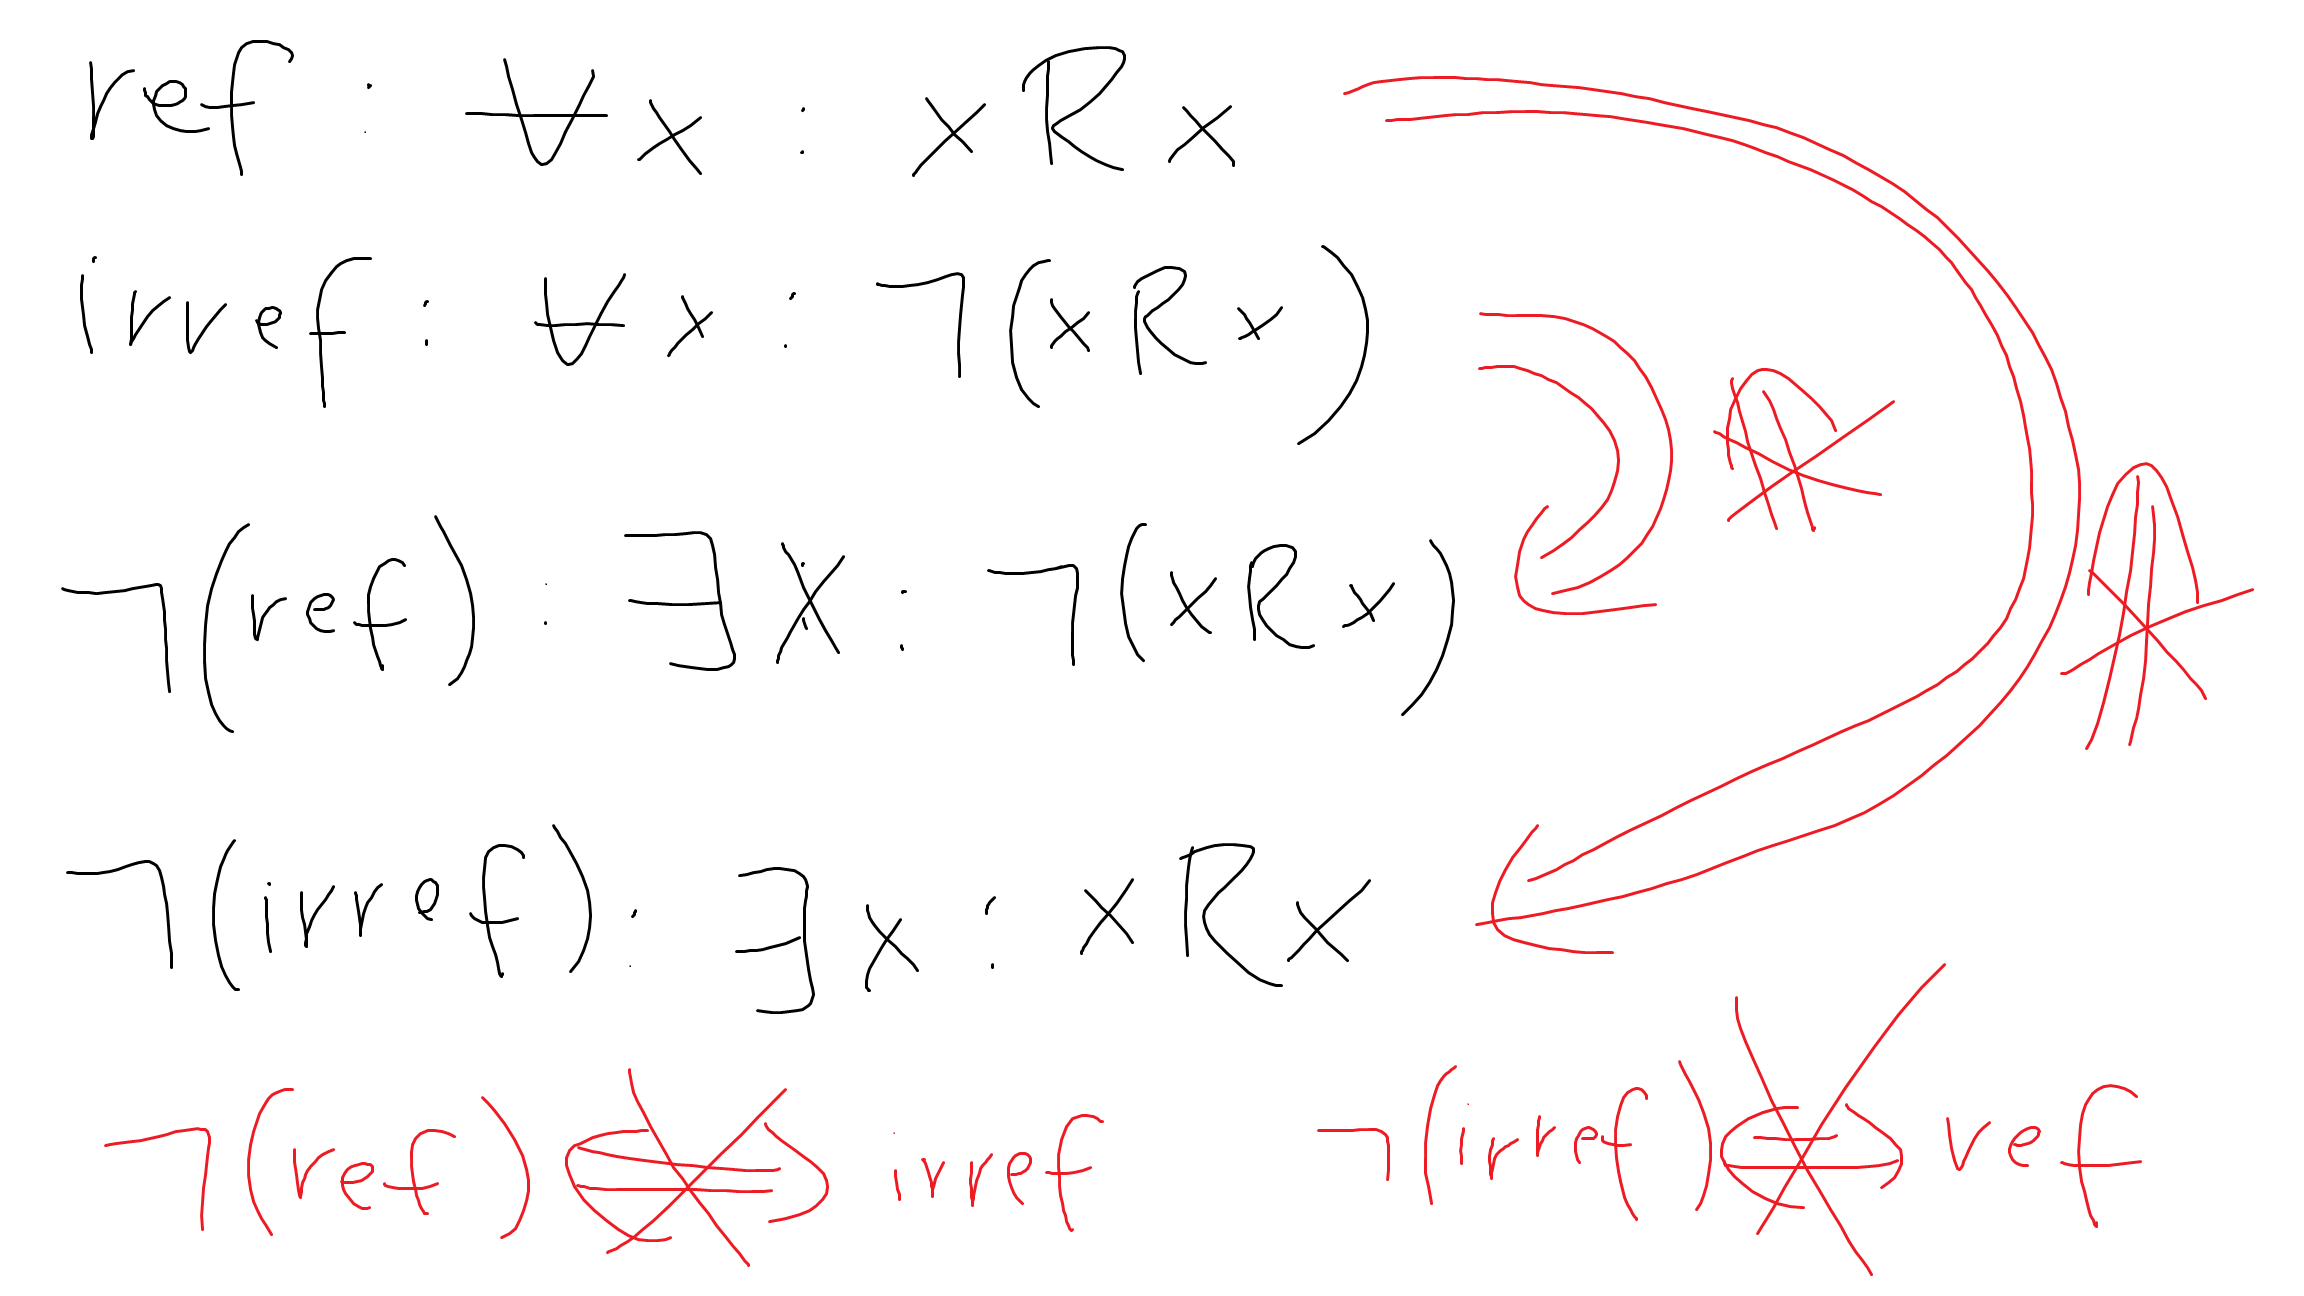 ref : ∀x : xRx
irref : ∀x : ¬(xRx)
¬(ref) : ∃x : ¬(xRx)
¬(irref) : ∃x : xRx
¬(ref) ⇎ irref ¬(irref) ⇎ ref